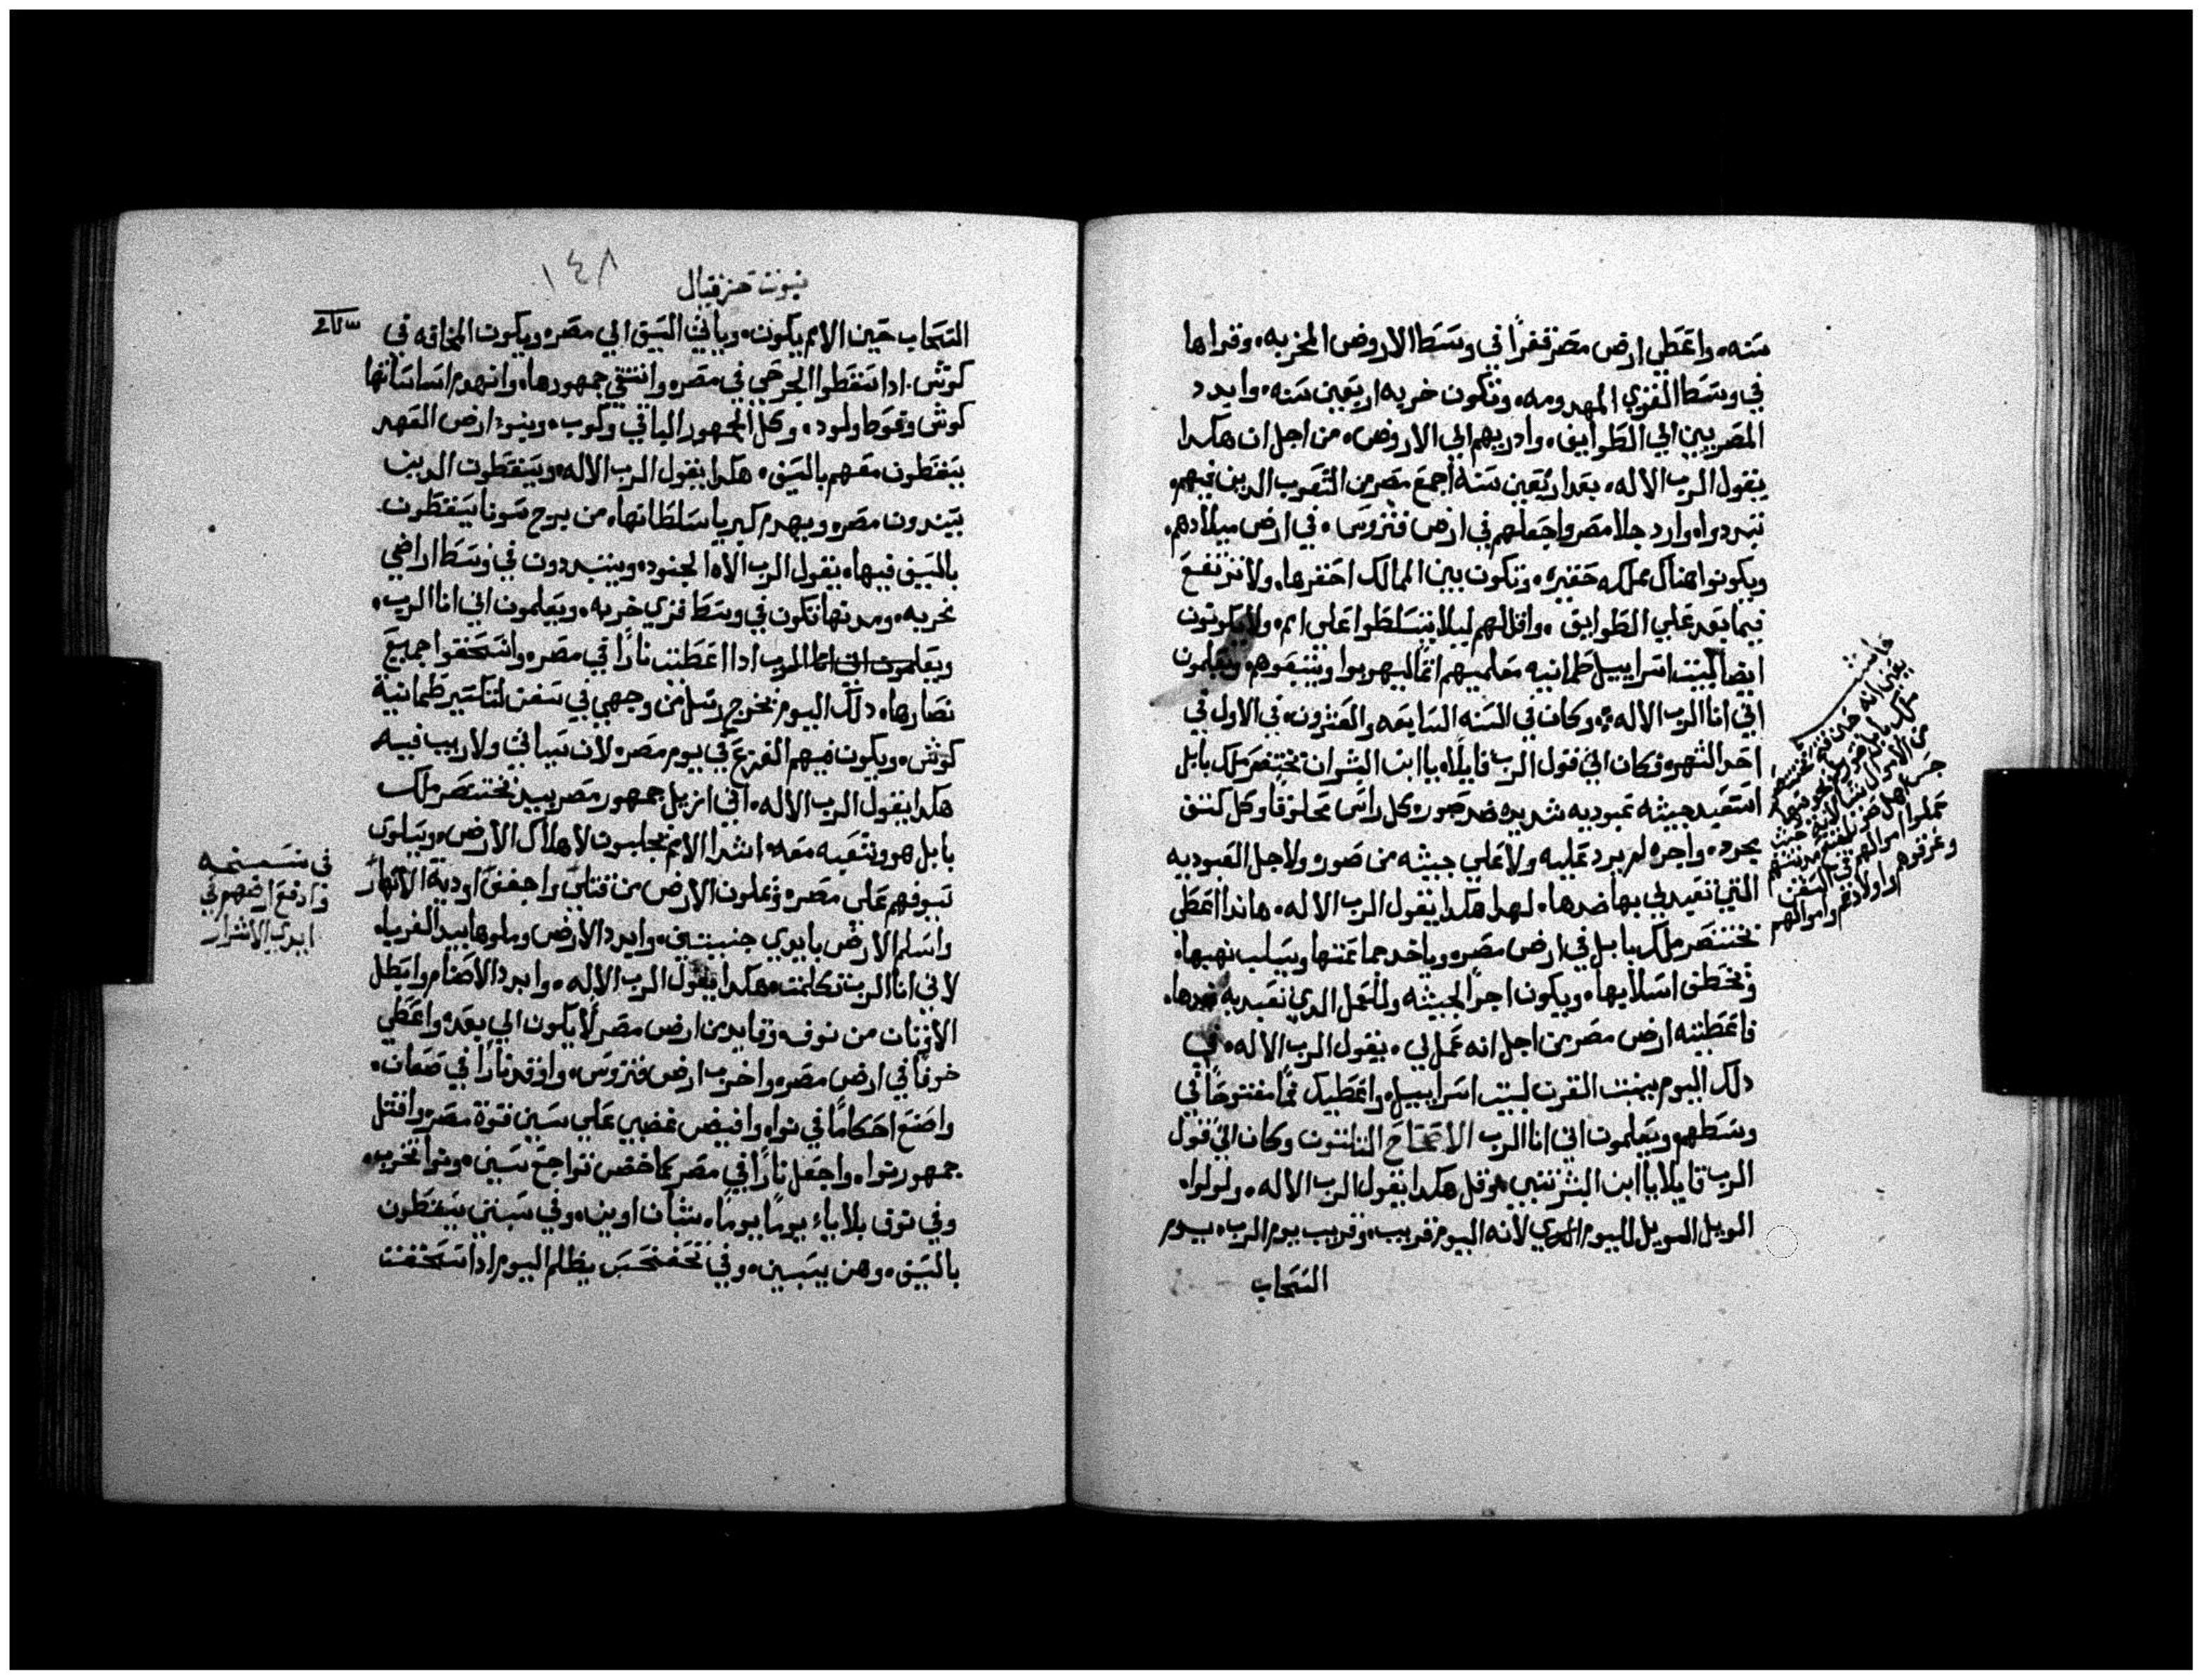 سنه، واعطي ارض مصر قفرًا في وسط الاروض المخربه، وقراها
في وسط القري المهدومه، وتكون خربه اربعين سنه، وابدد
المصريين الي الطوايف، وادريهم الي الاروض، من اجل ان هكدا
يقول الرب الاله، بعد اربعين سنه اجمع مصر من الشعوب الدين فيهم،
تبددوا، وارد جلا مصر واجعلهم في ارض فتروس، في ارض ميلادهم،
ويكونوا هناك مملكه حقيره، وتكون بين الممالك احقرها، ولا ترتفع
فيما بعد علي الطوايف، واقللهم ليلا يتسلطوا علي امم، ولا يكونون
ايضا لبيت اسراييل طمانيه معلميهم اتمًا ليهربوا ويتبعوهم ويعلمون
اني انا الرب الاله، وكان في السنه السابعه والعشرون، في الاول في
احد الشهر، فكان الي قول الرب قايلًا، يا ابن البشر ان بختنصر ملك بابل
استعبد جيشه عبوديه شديده ضد صور، كل راس محلوقًا وكل كتف
مجرده، واجره لم يرد عليه ولا علي جيشه من صور، ولاجل العبوديه
التي تعبد لي بها ضدها، لهدا هكدا يقول الرب الاله، هاندا اعطي
بختنصر ملك بابل في ارض مصر، وياخد جماعتها ويسلب نهبها،
وتخطف اسلابها، ويكون اجرًا لجيشه وللعمل الدي تعبد به ضدها،
فاعطيته ارض مصر من اجل انه عمل لي، يقول الرب الاله، في
دلك اليوم ينبت القرن لبيت اسراييل، واعطيك فمًا مفتوحًا في
وسطهم ويعلمون اني انا الرب الاصحاح التلتون وكان الي قول
الرب قايلًا يا ابن البشر تنبي وقل هكدا يقول الرب الاله، ولولوا،
الويل الويل لليوم لانه اليوم قريب، وقريب يوم الرب، يوم
السحاب
حاشيه
نبوت حزقيال
١٤٨
السحاب حين الامم يكون، وياتي السيف الي مصر، ويكون المخافه في
كوش، ادا سقطوا الجرحي في مصر، وانتفي جمهورها، وانهدم اساساتها
كوش وفوط ولود، وكل الجمهور الباقي وكوب، وبنوا ارض العهد
يسقطون معهم بالسيف، هكدا يقول الرب الاله، ويسقطون الدين
يسندون مصر، ويهدم كبريا سلطانها، من برج سونا يسقطون
بالسيف فيها، يقول الرب الاه الجنود، ويتبددون في وسط اراضي
مخربه، ومدنها تكون في وسط قري خربه، ويعلمون اني انا الرب،
ويعلمون اني انا الرب ادا اعطيت نارًا في مصر، وانسحقوا جميع
نصارها، دلك اليوم تخرج رسل من وجهي في سفن لتكسير طمانية
كوش، ويكون فيهم الفزع في يوم مصر، لان سياتي ولا ريب فيه
هكدا يقول الرب الاله، اني ازيل جمهور مصر بيد بختنصر ملك
بابل هو وشعبه معه، اشدا الامم يجلبون لاهلاك الارض، ويسلون
سيوفهم علي مصر، ويملون الارض من قتلي، واجفف اودية الانهار
واسلم الارض بايدي خبيثين، وابدد الارض وملوها بيد الغربا،
لاني انا الرب تكلمت، هكدا يقول الرب الاله، وابدد الاصنام وابطل
الاوتان من نوف، وقايد من ارض مصر لا يكون الي بعد، واعطي
خوفًا في ارض مصر، واخرب ارض فتروس، واوقد نارًا في صعان،
واصنع احكامًا في نوا، وافيض غضبي علي سين قوة مصر، واقتل
جمهور نوا، واجعل نارًا في مصر كما خض تواجع سين، ونوا تخرب،
وفي نوف بلاياء يومًا يومًا، شبان اوين، وفي سبتي يسقطون
بالسيف، وهن يسبين، وفي تحفنحس يظلم اليوم ادا سحقت
في نسخه
وادفع ارضهم في
ايدي الاشرار